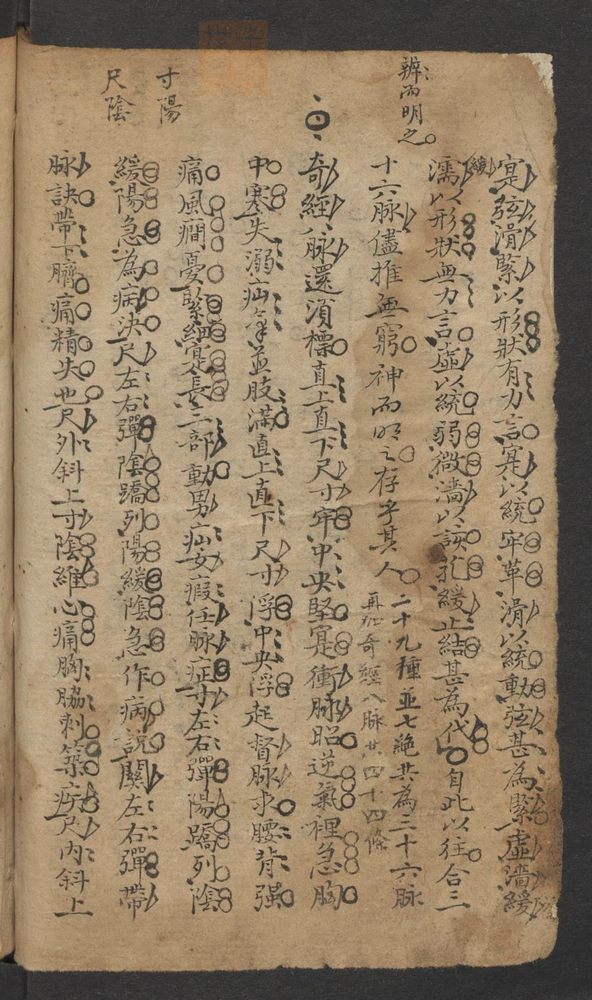 辨而明之
寔弦滑緊以形狀有力言寔以統牢革滑以統動弦甚為緊虛濇緩
濡以形狀無力言虛以統弱微濇以該芤緩止結甚為代自此以往合三
緩
十六脉儘推無窮神而明之存乎其人
二十九種並七絕共為三十六脉
再加奇經八脉共四十四條
奇經八脉還須標直上直下尺寸牢中央堅寔衝脉昭逆氣裡急胸
中寒失溺疝並肢滿直上直下尺寸浮中央浮起督脉求腰背强
痛風癇憂緊細寔長三部動男疝女瘕任脉症寸左右彈陽蹻列陰
寸陽
緩陽急為病決尺左右彈陰蹻列陽緩陰急作病說關左右彈帶
尺陰
脉訣帶下臍痛精失也尺外斜上寸陰維心痛胸脇刺築疾尺內斜上